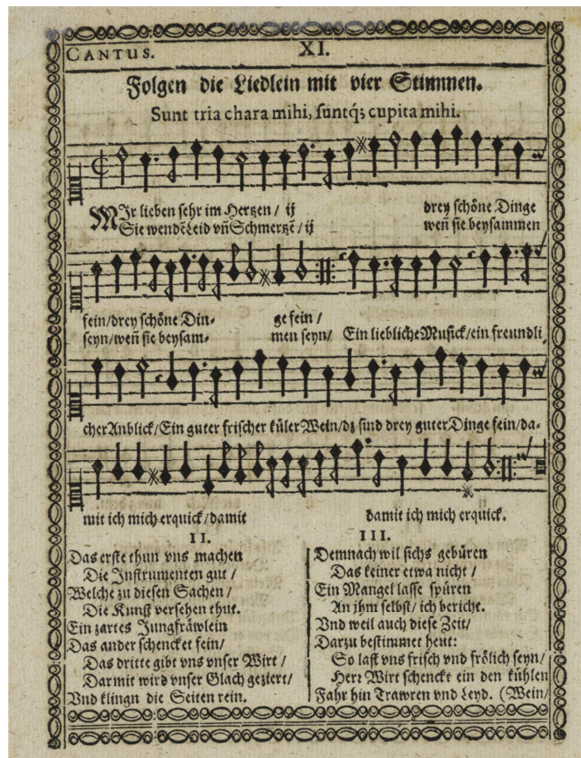 CANTUS.
XI.
Folgen die Liedlein mit vier Stimmen.
Sunt tria chara mihi, suntq́; cupita mihi.
MIr lieben sehr im Hertzen / ij drey schöne Dinge
Sie wendẽ Leid vñ Schmertzẽ / ij weñ sie beysammen
fein/drey schöne Din- ge fein /
seyn/weñ sie beysam- men seyn/ Ein liebliche Musick/ein freundli,
cher Anblick/Ein guter frischer küler Wein/dz sind drey guter Dinge fein/da-
mit ich mich erquick/damit damit ich mich erquick.
II.
Das erste thun vns machen
Die Instrumenten gut /
Welche zu diesen Sachen /
Die Kunst versehen thut.
Ein zartes Jungfräwlein
Das ander schencket fein/
Das dritte gibt vns vnser Wirt /
Darmit wird vnser Glach geziert/
Vnd klingn die Seiten rein.
III.
Demnach wil sichs gebüren
Das keiner etwa nicht /
Ein Mangel lasse spüren
An jhm selbst/ ich bericht.
Vnd weil auch diese Zeit/
Darzu bestimmet heut:
So last vns frisch vnd frölich seyn/
Herr Wirt schenckt ein den kühlen
Fahr hin Trawren vnd Leyd. (Wein/